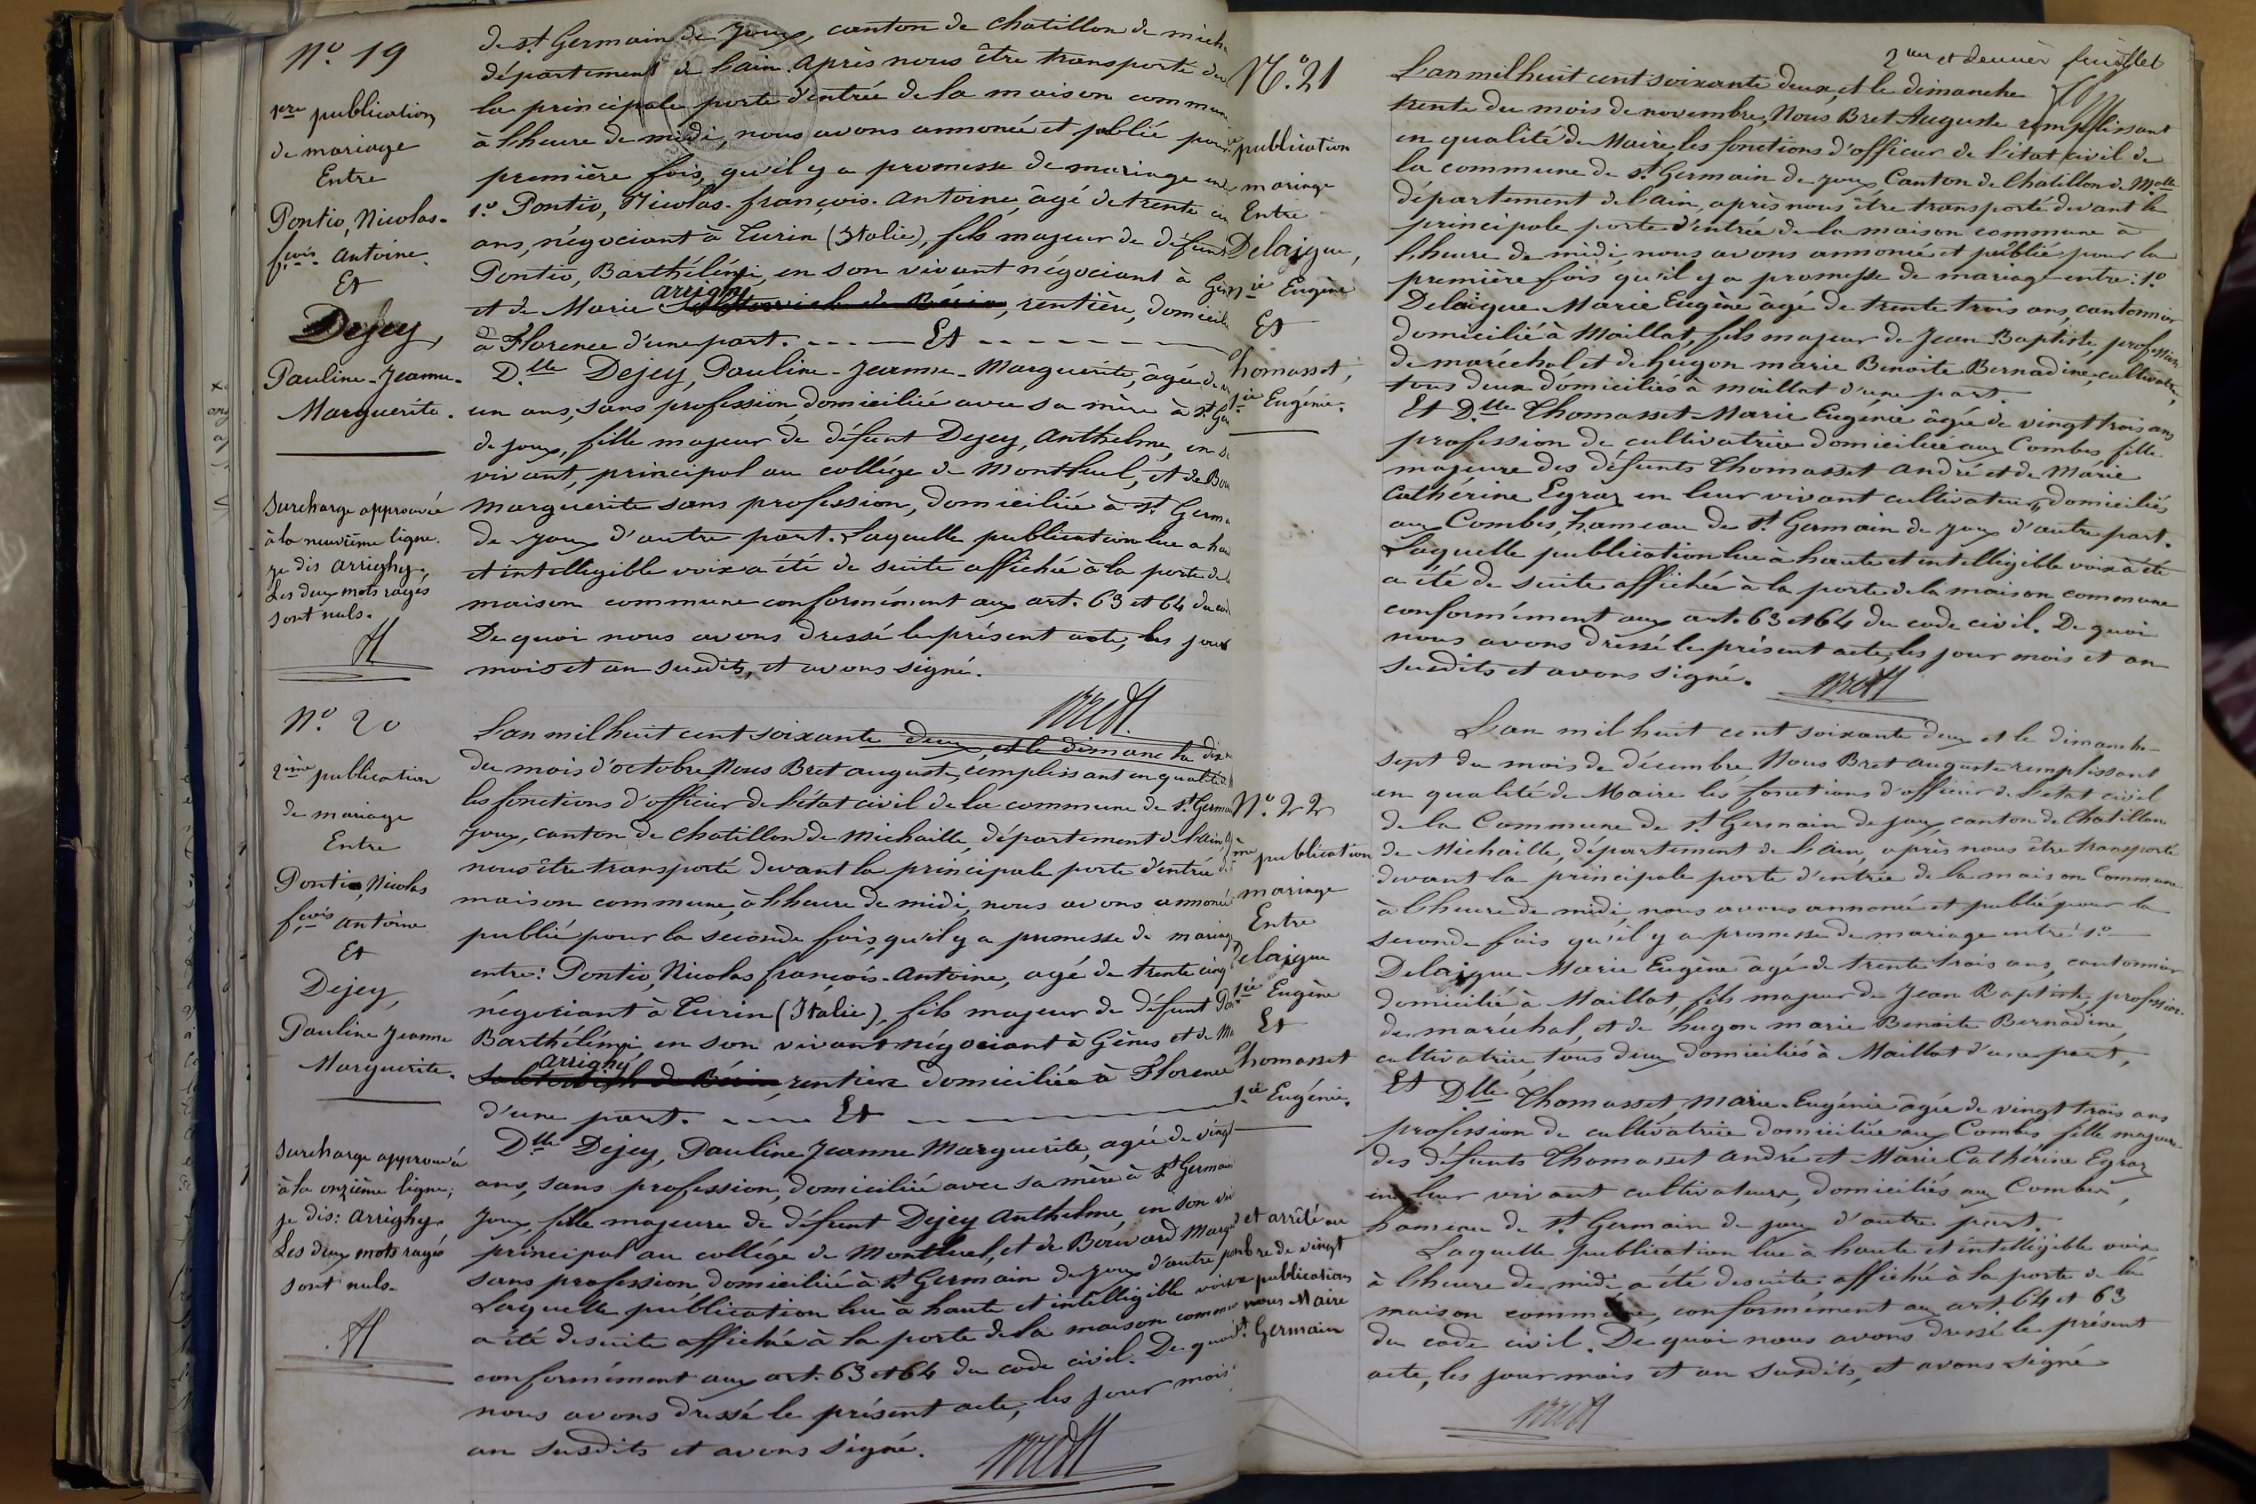 N.º 19
1re publication
de mariage
Entre
Pontio, Nicolas-
fçois Antoine.
Et
Dejey,
Pauline-Jeanne-
Marguerite.
Surcharge approuvée
à la neuvième ligne.
je dis arrighy.
Les deux mots rayés
sont nuls.
de St Germain de Joux, canton de Chatillon de mich
département de l'ain. Après nous être transporté
la principale porte d'entrée de la maison commun
à l'heure de midi, nous avons annoncé et publié pour
première fois, qu'il y a promesse de mariage
1º Pontio, Nicolas-françois-Antoine, âgé de trente
ans, négociant à Turin (Italie), fils majeur de défunt
Pontio, Barthélémi, en son vivant négociant à Gên
arrighy
et de Marie rentière, domicil
à Florence d'une part. Et
Dlle Dejey, Pauline-Jeanne-Marguerite, âgée de
un ans, sans profession, domiciliée avec sa mère à St Ger
de joux, fille majeur de défunt Dejey, Anthelme, en
vivant, principal au collége de Montluel, et de Bou
Marguerite sans profession, domiciliée à St Germ
de Joux d'autre part. Laquelle publication lue a hau
et intelligible voix a été de suite affichée à la porte de
maison commune conformément aux art. 63 et 64 du
De quoi nous avons dressé le présent acte, les jour
mois et an susdits, et avons signé.
Bret
N.º 20
2ème publication
de mariage
Entre
Pontio, Nicolas
fçois Antoine
Et
Dejey,
Pauline Jeanne
Marguerite.
Surcharge approuvée
à la onzième ligne;
je dis: arrighy.
Les deux mots rayés
sont nuls.
L'an mil huit cent soixante deux, et le dimanche dix
du mois d'octobre, Nous Bret auguste, remplissant en qualité
les fonctions d'officier de l'état civil de la commune de St Germain
Joux, canton de Chatillon de Michaille, département de l'ain,
nous être transporté devant la principale porte d'entrée
maison commune, à l'heure de midi, nous avons annoncé
publié pour la seconde fois, qu'il y a promesse de mariage
entre: Pontio, Nicolas françois-Antoine, agé de trente cinq
négociant à Turin (Italie), fils majeur de défunt
Barthélémi en son vivant négociant à Gênes et de Ma
arrighy
rentière domiciliée à Florence
d'une part. Et
Dlle Dejey, Pauline Jeanne Marguerite, agée de vingt
ans, sans profession, domiciliée avec sa mère à St Germain
Joux, fille majeure de défunt Dejey Anthelme, en son vi
principal au collége de Montluel, et de Bouvard Marg
sans profession, domiciliée à St Germain de Joux d'autre part
Laquelle publication lue à haute et intelligible voix
a été de suite affichée à la porte de la maison commu
conformément aux art. 63 et 64 du code civil. De quoi
nous avons dressé le présent acte, les jour mois
an susdits et avons signé.
Bret
N.º 21
publication
mariage
Entre
Delaigue,
Mie Eugène
Et
Thomasset,
Mie Eugénie.
2me et dernier feuillet
L'an mil huit cent soixante deux, et le dimanche
trente du mois de novembre, Nous Bret Auguste remplissant
en qualité de Maire, les fonctions d'officier de l'état civil de
la commune de St Germain de joux Canton de Chatillon de Mlle
département de l'ain, après nous être transporté devant la
principale porte d'entrée de la maison commune à
l'heure de midi, nous avons annoncé et publié pour la
première fois qu'il y a promesse de mariage entre: 1º
Delaigue Marie Eugène âgé de trente trois ans, cantonnier
domicilié à Maillat, fils majeur de Jean Baptiste, profession
de maréchal et de Hugon marie Benoite Bernadine, cultivatrice,
tous deux domiciliés à maillat d'une part.
Et Dlle Thomasset-Marie Eugénie âgée de vingt trois ans
profession de cultivatrice domiciliée aux Combes fille
majeure des défunts Thomasset André et de Marie
Cathérine Egraz en leur vivant cultivateurs, domiciliés
aux Combes, hameau de St Germain de joux d'autre part.
Laquelle publication lue à haute et intelligible voix à été
a été de suite affichée à la porte de la maison commune
conformément aux art. 63 et 64 du code civil. De quoi
nous avons dressé le présent acte, les jour mois et an
susdits et avons signé.
Bret
N.º 22
me publication
mariage
Entre
Delaigue
Mie Eugène
Et
Thomasset
Mie Eugénie.
et arrêté au
nombre de vingt
publications
nous Maire
St Germain
L'an mil huit cent soixante deux et le dimanche
sept du mois de décembre, Nous Bret auguste remplissant
en qualité de Maire les fonctions d'officier de l'état civil
de la Commune de St Germain de joux, canton de Chatillon
de Michaille, département de l'ain, après nous être transporté
devant la principale porte d'entrée de la maison Commune
à l'heure de midi, nous avons annoncé et publié pour la
seconde fois qu'il y a promesse de mariage entre: 1º
Delaigue Marie Eugène âgé de trente trois ans, cantonnier
domicilié à Maillat, fils majeur de Jean Baptiste, profession
de maréchal, et de hugon marie Benoite Bernadine,
cultivatrice, tous deux domiciliés à Maillat d'une part,
Et Dlle Thomasset, Marie-Eugénie âgée de vingt trois ans
profession de cultivatrice domiciliée aux Combes fille majeure
des défunts Thomasset André et Marie Cathérine Egraz
en leur vivant cultivateurs, domiciliés aux Combes,
hameau de St Germain de joux d'autre part.
Laquelle publication lue à haute et intelligible voix
à l'heure de midi, a été de suite affichée à la porte de la
maison commune, conformément aux art. 64 et 63
du code civil. De quoi nous avons dressé le présent
acte, les jour mois et an susdits, et avons signé
Bret